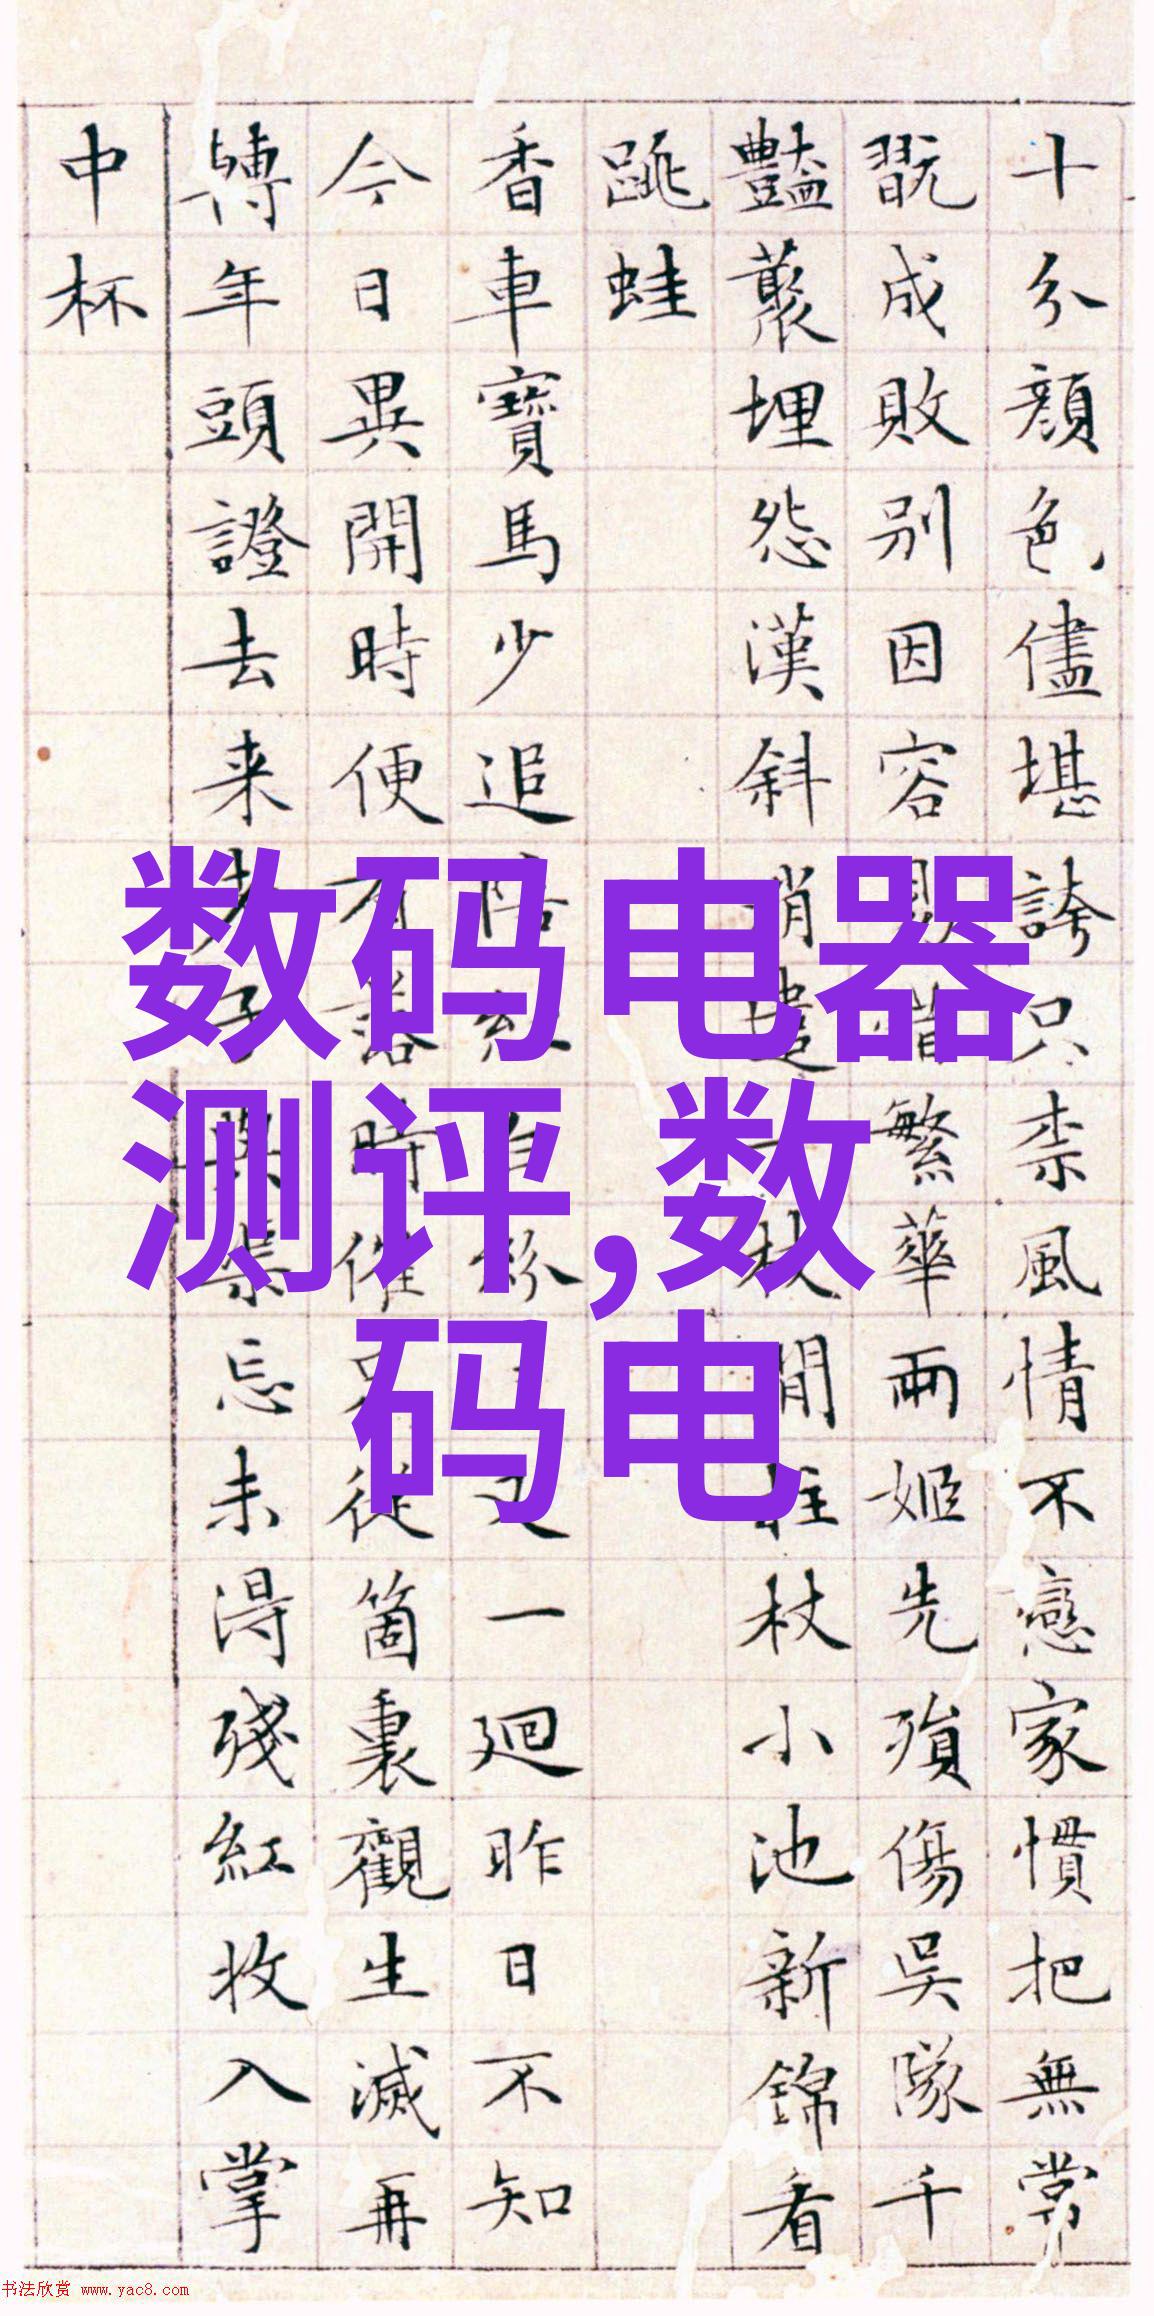 十分顔色儘堪誇只柰風情不戀家慣把無常
翫成敗别因容繁華兩姬先殞傷吳隊千
豔叢埋怨漢斜杖閒拄杖小池新錦看
跳蛙
香車寶馬少追陪一廻昨日不知
今日異開時便有落時催從箇裏觀生滅再
轉年頭證去来忘未淂殘紅收入掌
中杯
数码电器
测评,数
码电
书法欣赏 www.yac8.com